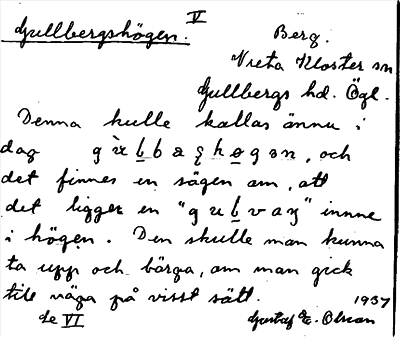 V
Gullbergshögen.
Berg.
Vreta Kloster sn
Gullbergs hd. Ögl.
Denna kulle kallas ännu i
dag
, och
det finnes en sägen om, att
det ligger en "
" innne
i högen. Den skulle man kunna
ta upp och bärga, om man gick
till väga på visst sätt.
1937
Se VI
Gustaf E. Olsson